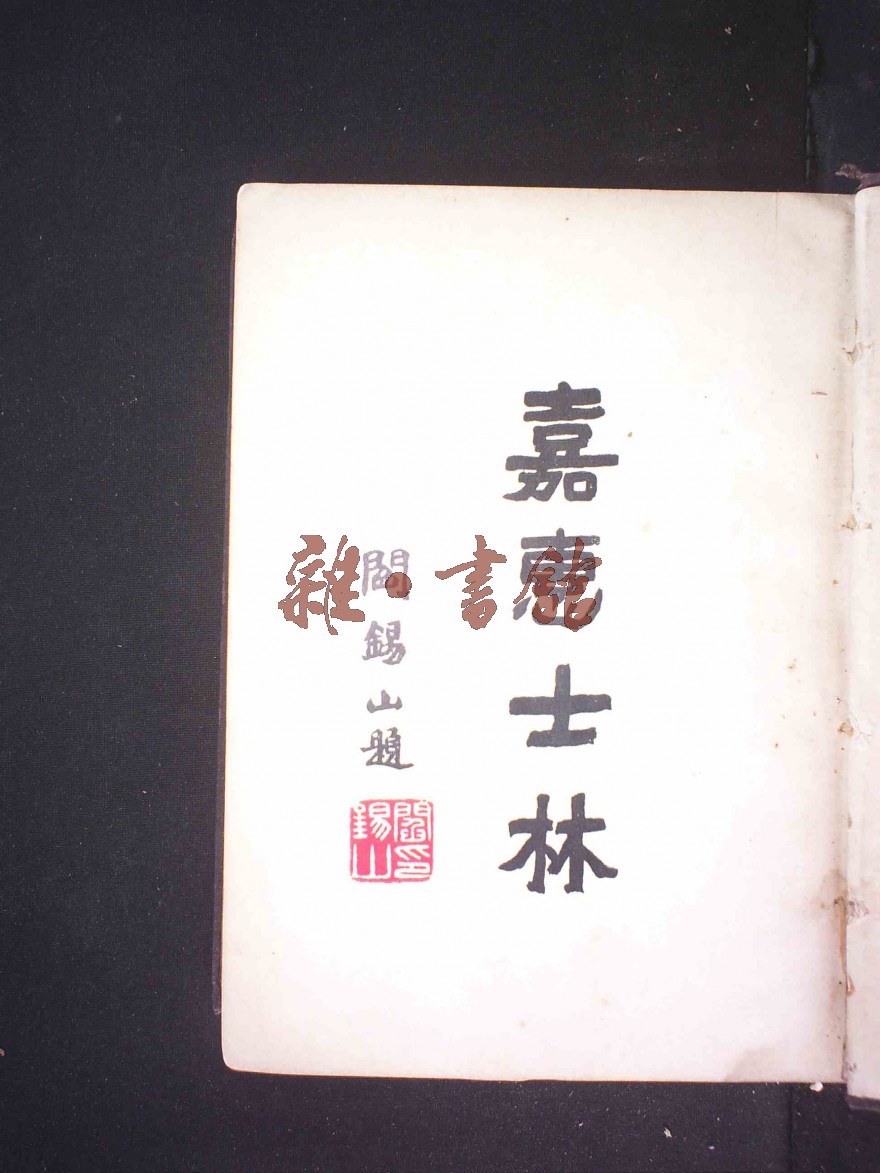 嘉惠士林
閻錫山題
閻錫山印
雜·書館